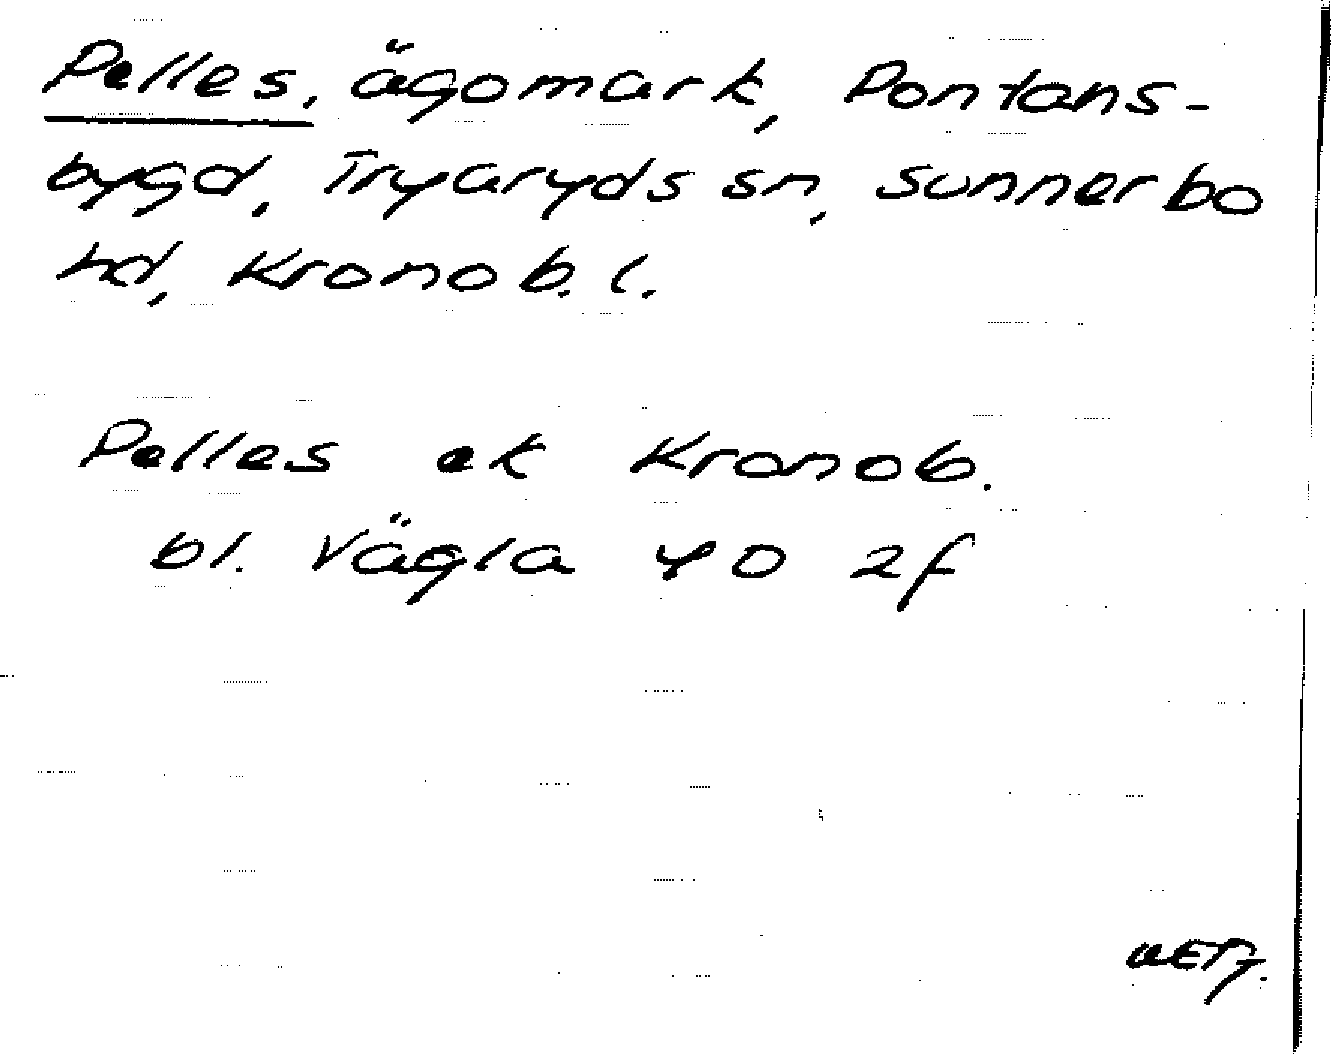 Pelles, ägomark, Pontans-
bygd, Tryaryds sn, Sunnerbo
hd, Kronob. l.
Pelles ek Kronob.
bl. Vägla 40 2f